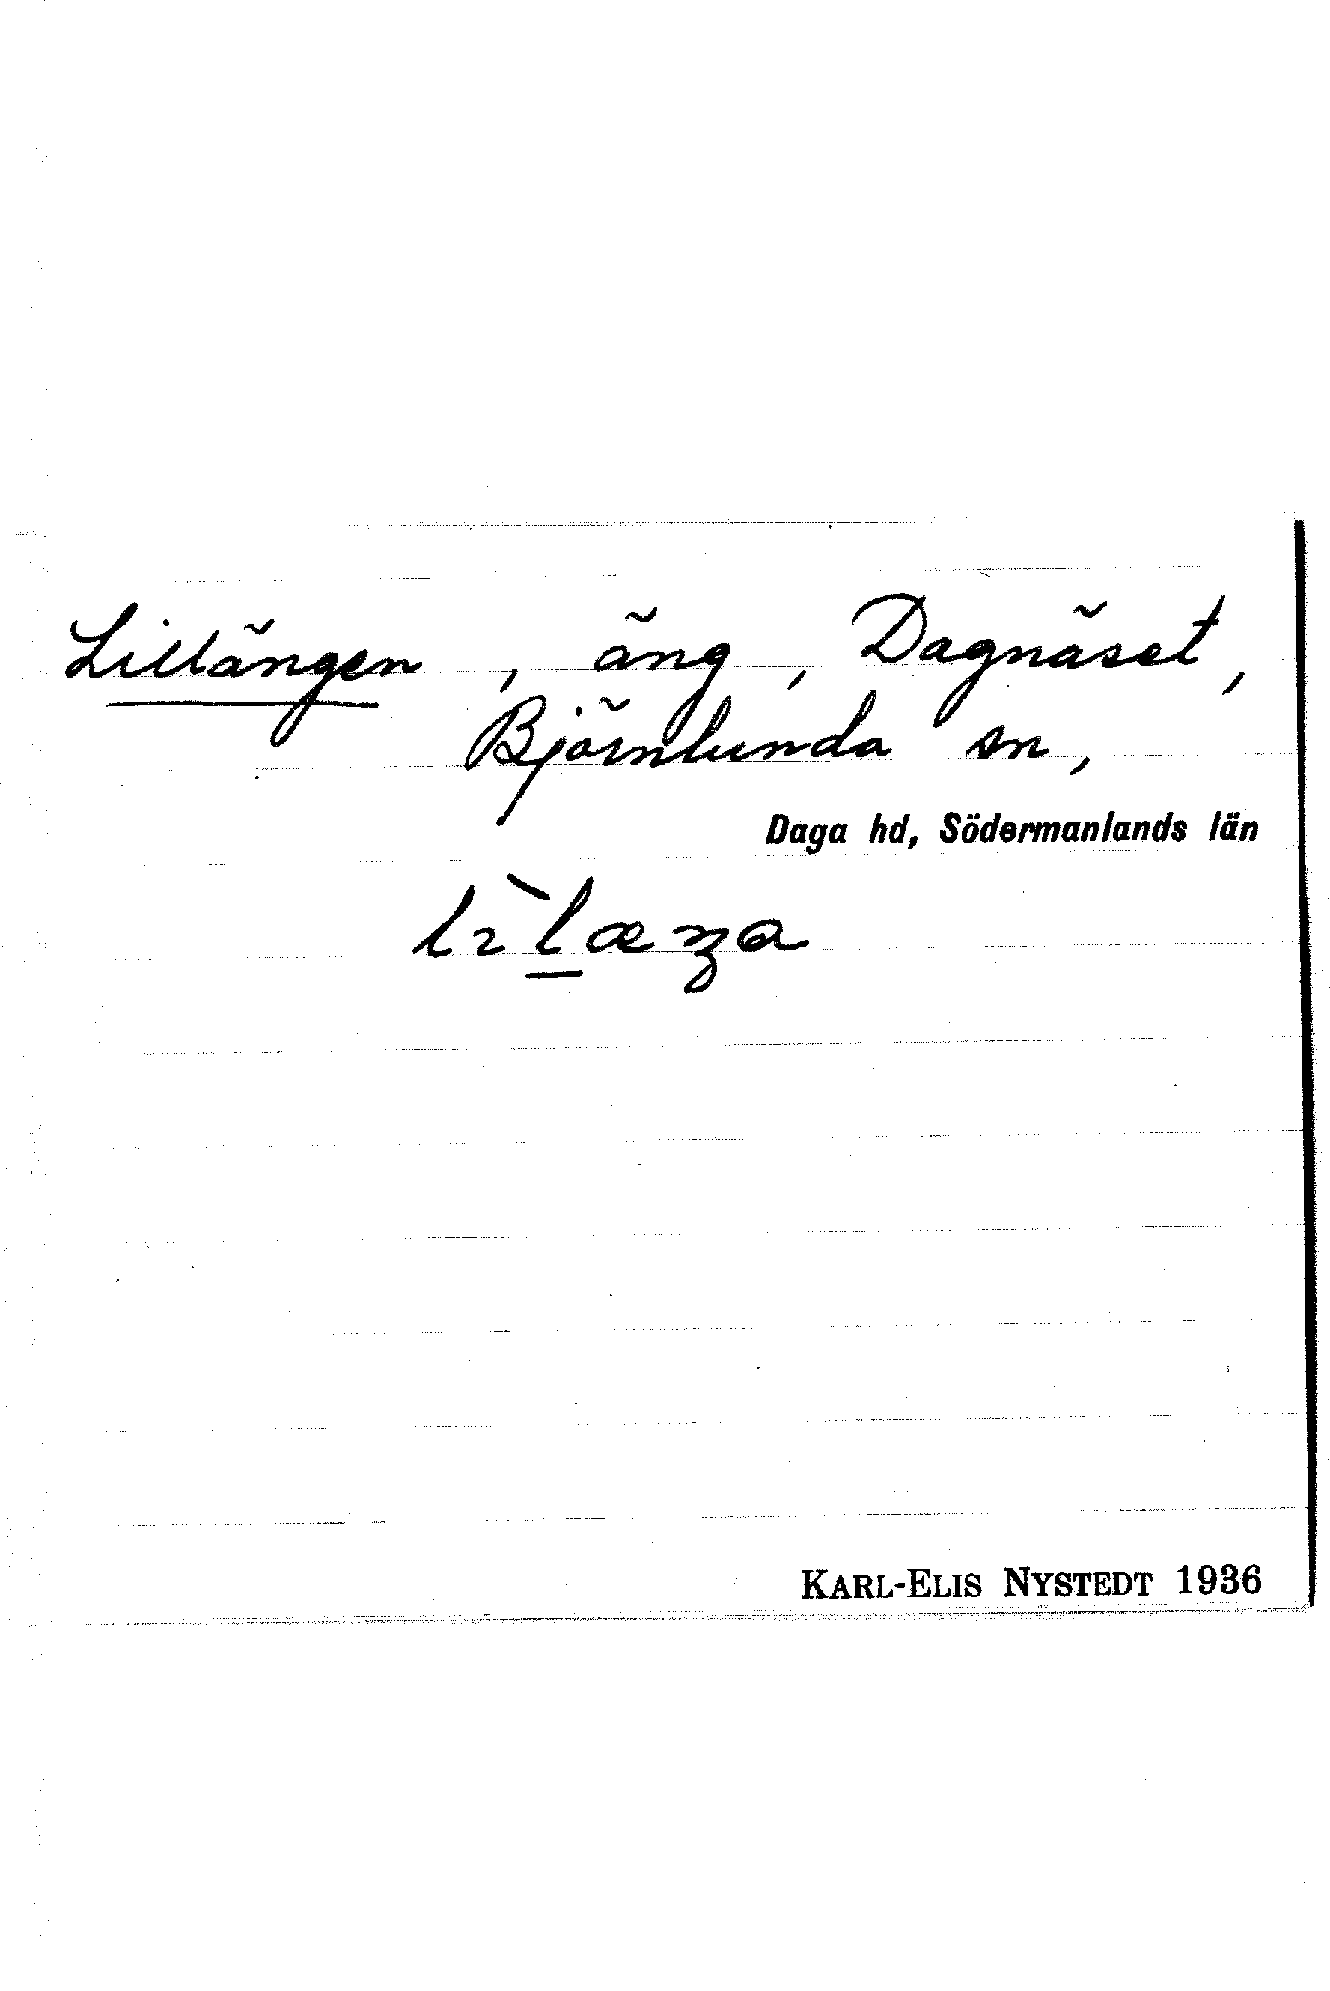 Lillängen, äng, Dagnäset,
Björnlunda sn,
Daga hd, Södermanlands län
KARL-ELIS NYSTEDT 1936